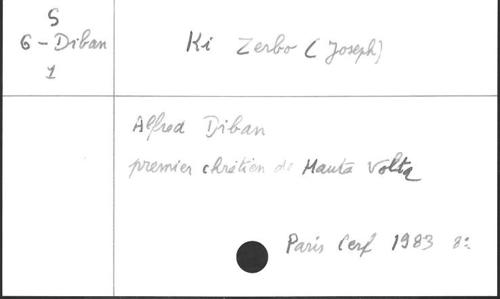 S
6 - Diban
1
Ki Zerbo (Joseph)
Alfred Diban
premier chrétien de Hauta Volta
Paris Cerf 1983 8: